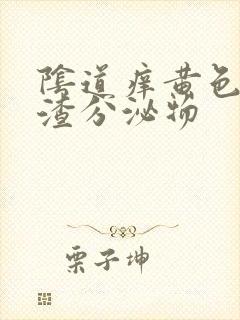 陰道痒黄色
渣分泌物
栗子坤